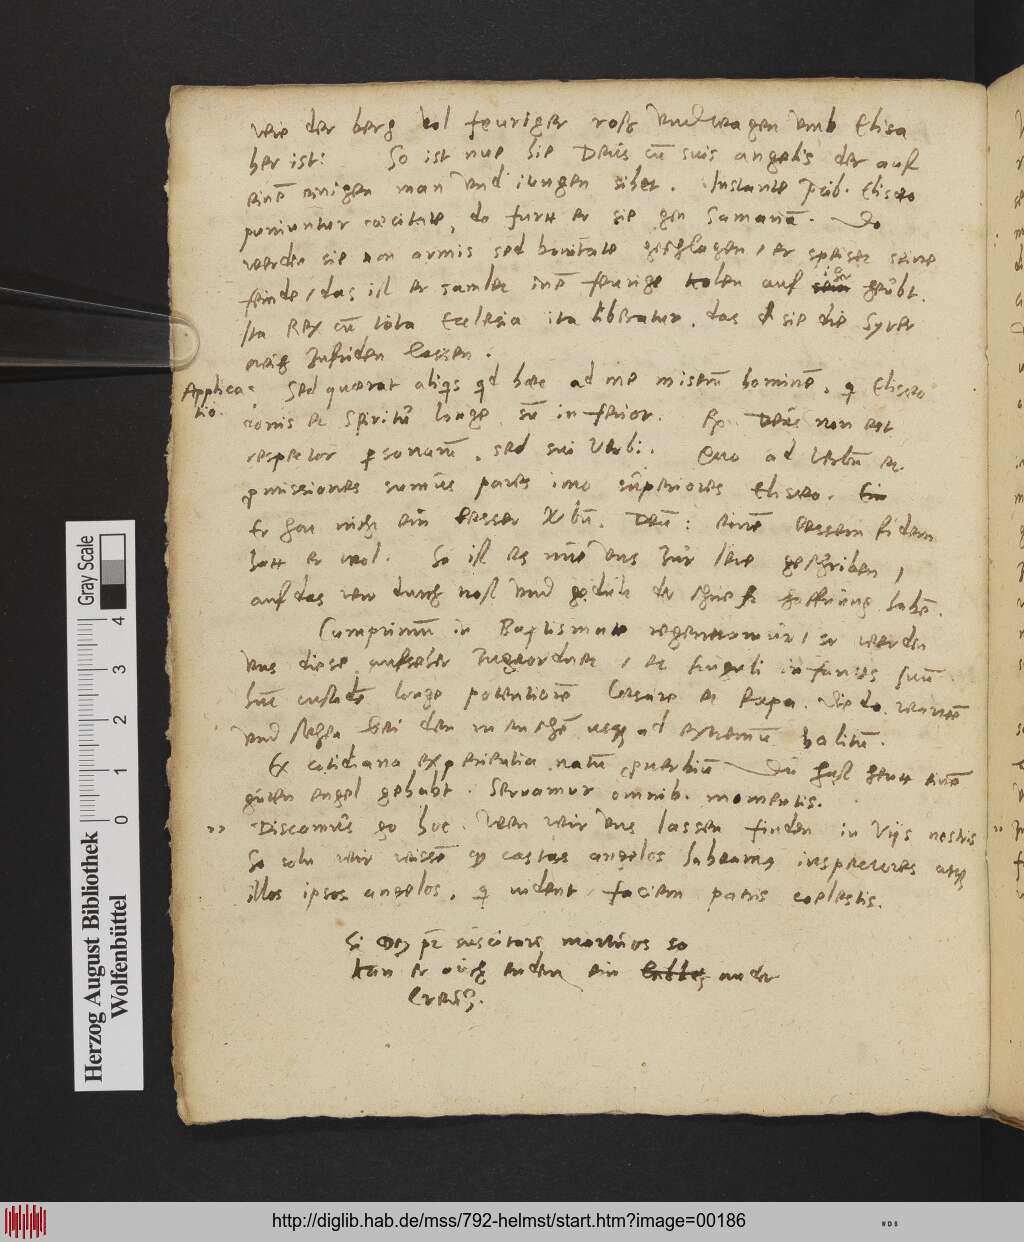 wie der berg vol feuriger roß und wagen umb Elisa
her ist: So ist nue hie Deus cū suis angelis der auf
einē einigen man und iungen sihet. Instante prib. Eliseo
puniuntur cæcitate, do furt er sie gen Samariā. Do
werden sie non armis sed bonitate geschlagen, er speiset seine
feinde, das ist er samlet inē feurige kolen auf geubt.
Ita Rex cū tota Ecclesia ita liberatur, das sie die Syrer
zufriden lassen.
Applica=
tio.
Sed quærat aliqis qd hæc ad me miserū hominē, q Eliseo
donis et Spiritu longe sū inferior. Rx. Deus non est
respector psonarū, sed sui Verbi. Quo ad Verbū et
pmissiones sumus pares imo superiores Eliseo.
Er hat nicht ein besser Verbū, Deū: einē bessern fidem
hatt er wol. So ist es nue uns zur lere geschriben,
auf das wir durch trost und gedult der schrieft hoffnung habē.
Cumprimū in Baptismate regeneramur, so werden
uns diese aufseher zugeordnet, et singuli infantes suū
hnt custodē longe potentiorē Cesare et Papa. Die do warten
und stehen bei den menschē usq ad extremū halitū.
Ex cotidiana experientia natū puerbiū Du hast heutt einē
guten engel gehabt. Servamur omnib. momentis.
Discamus go hoc. Wen wir uns lassen finden in Vijs nostris
So soln wir wissē q castos angelos habeamq inspectores atq
illos ipsos angelos, q vident faciem patris coelestis.
Si Deq pt suscitare mortuos so
kan er auch endern ein ander
Creatr.
Herzog August Bibliothek
Wolfenbüttel
Gray Scale
0 1 2 3 4
http://diglib.hab.de/mss/792-helmst/start.htm?image=00186